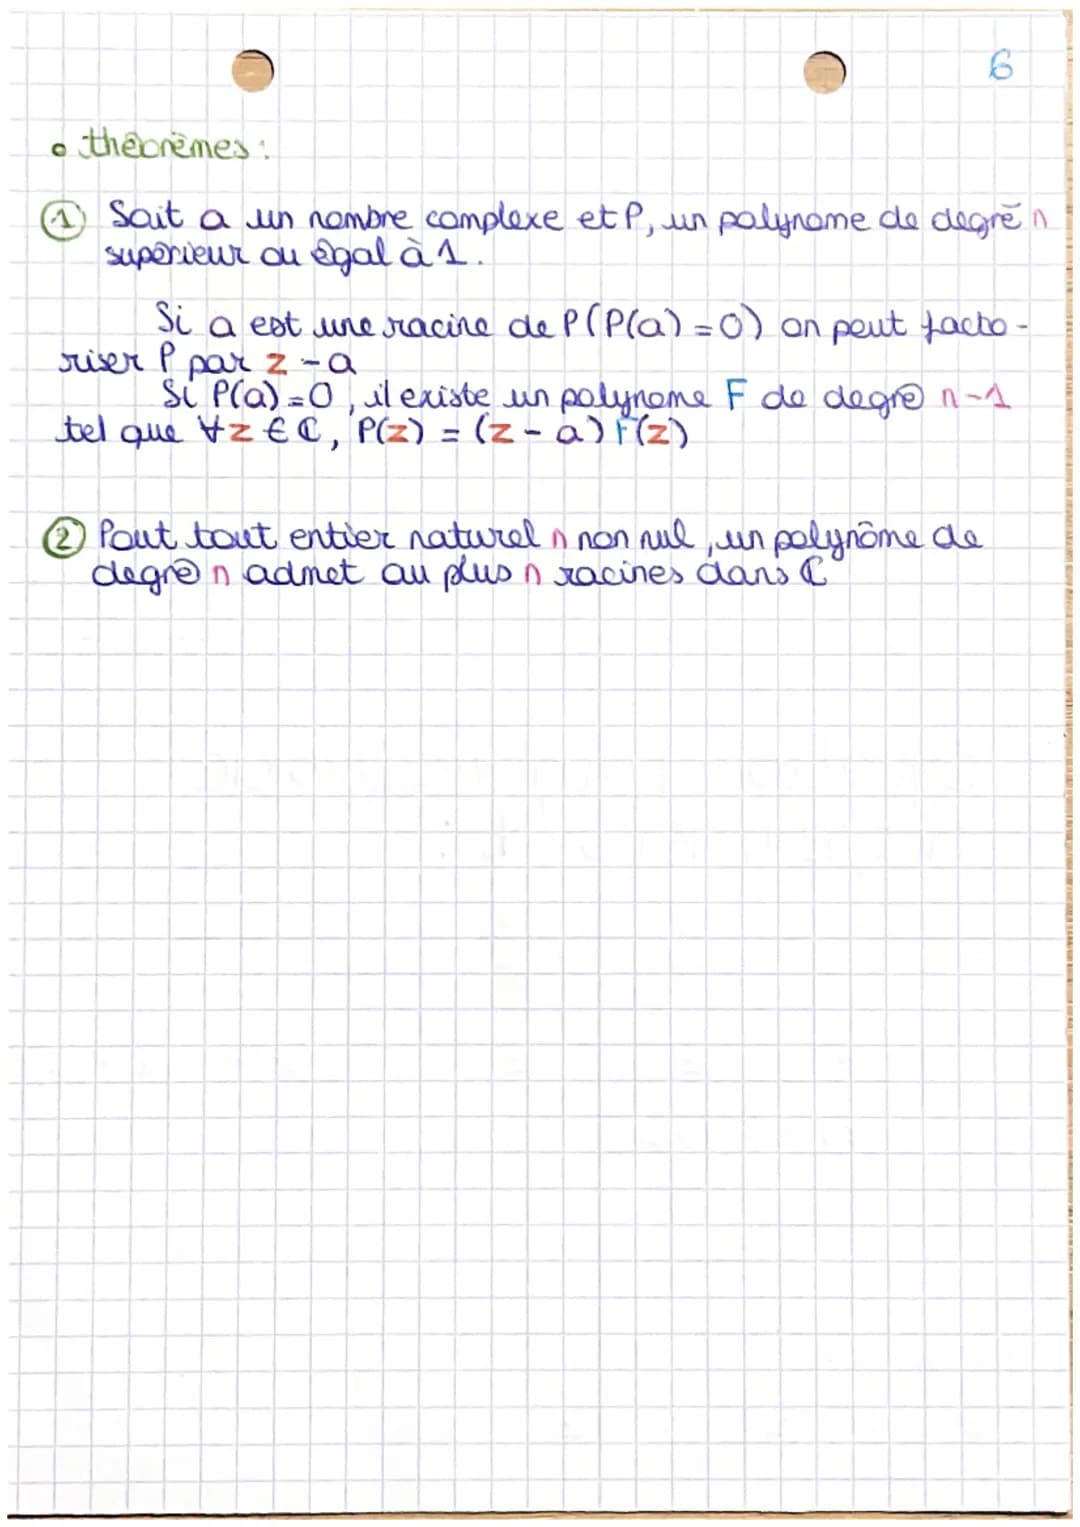 6
• théorèmes :
① Soit a un nombre complexe et P, un polynome de degré n
supérieur ou égal à 1.
Si a est une racine de P (P(a) = 0) on peut facto-
riser P par z - a
Si P(a) = 0, il existe un polynome F de degré n-1
tel que ∀z ∈ ℂ, P(z) = (z - a) F(z)
② Pout tout entier naturel n non nul, un polynôme de
degré n admet au plus n racines dans ℂ